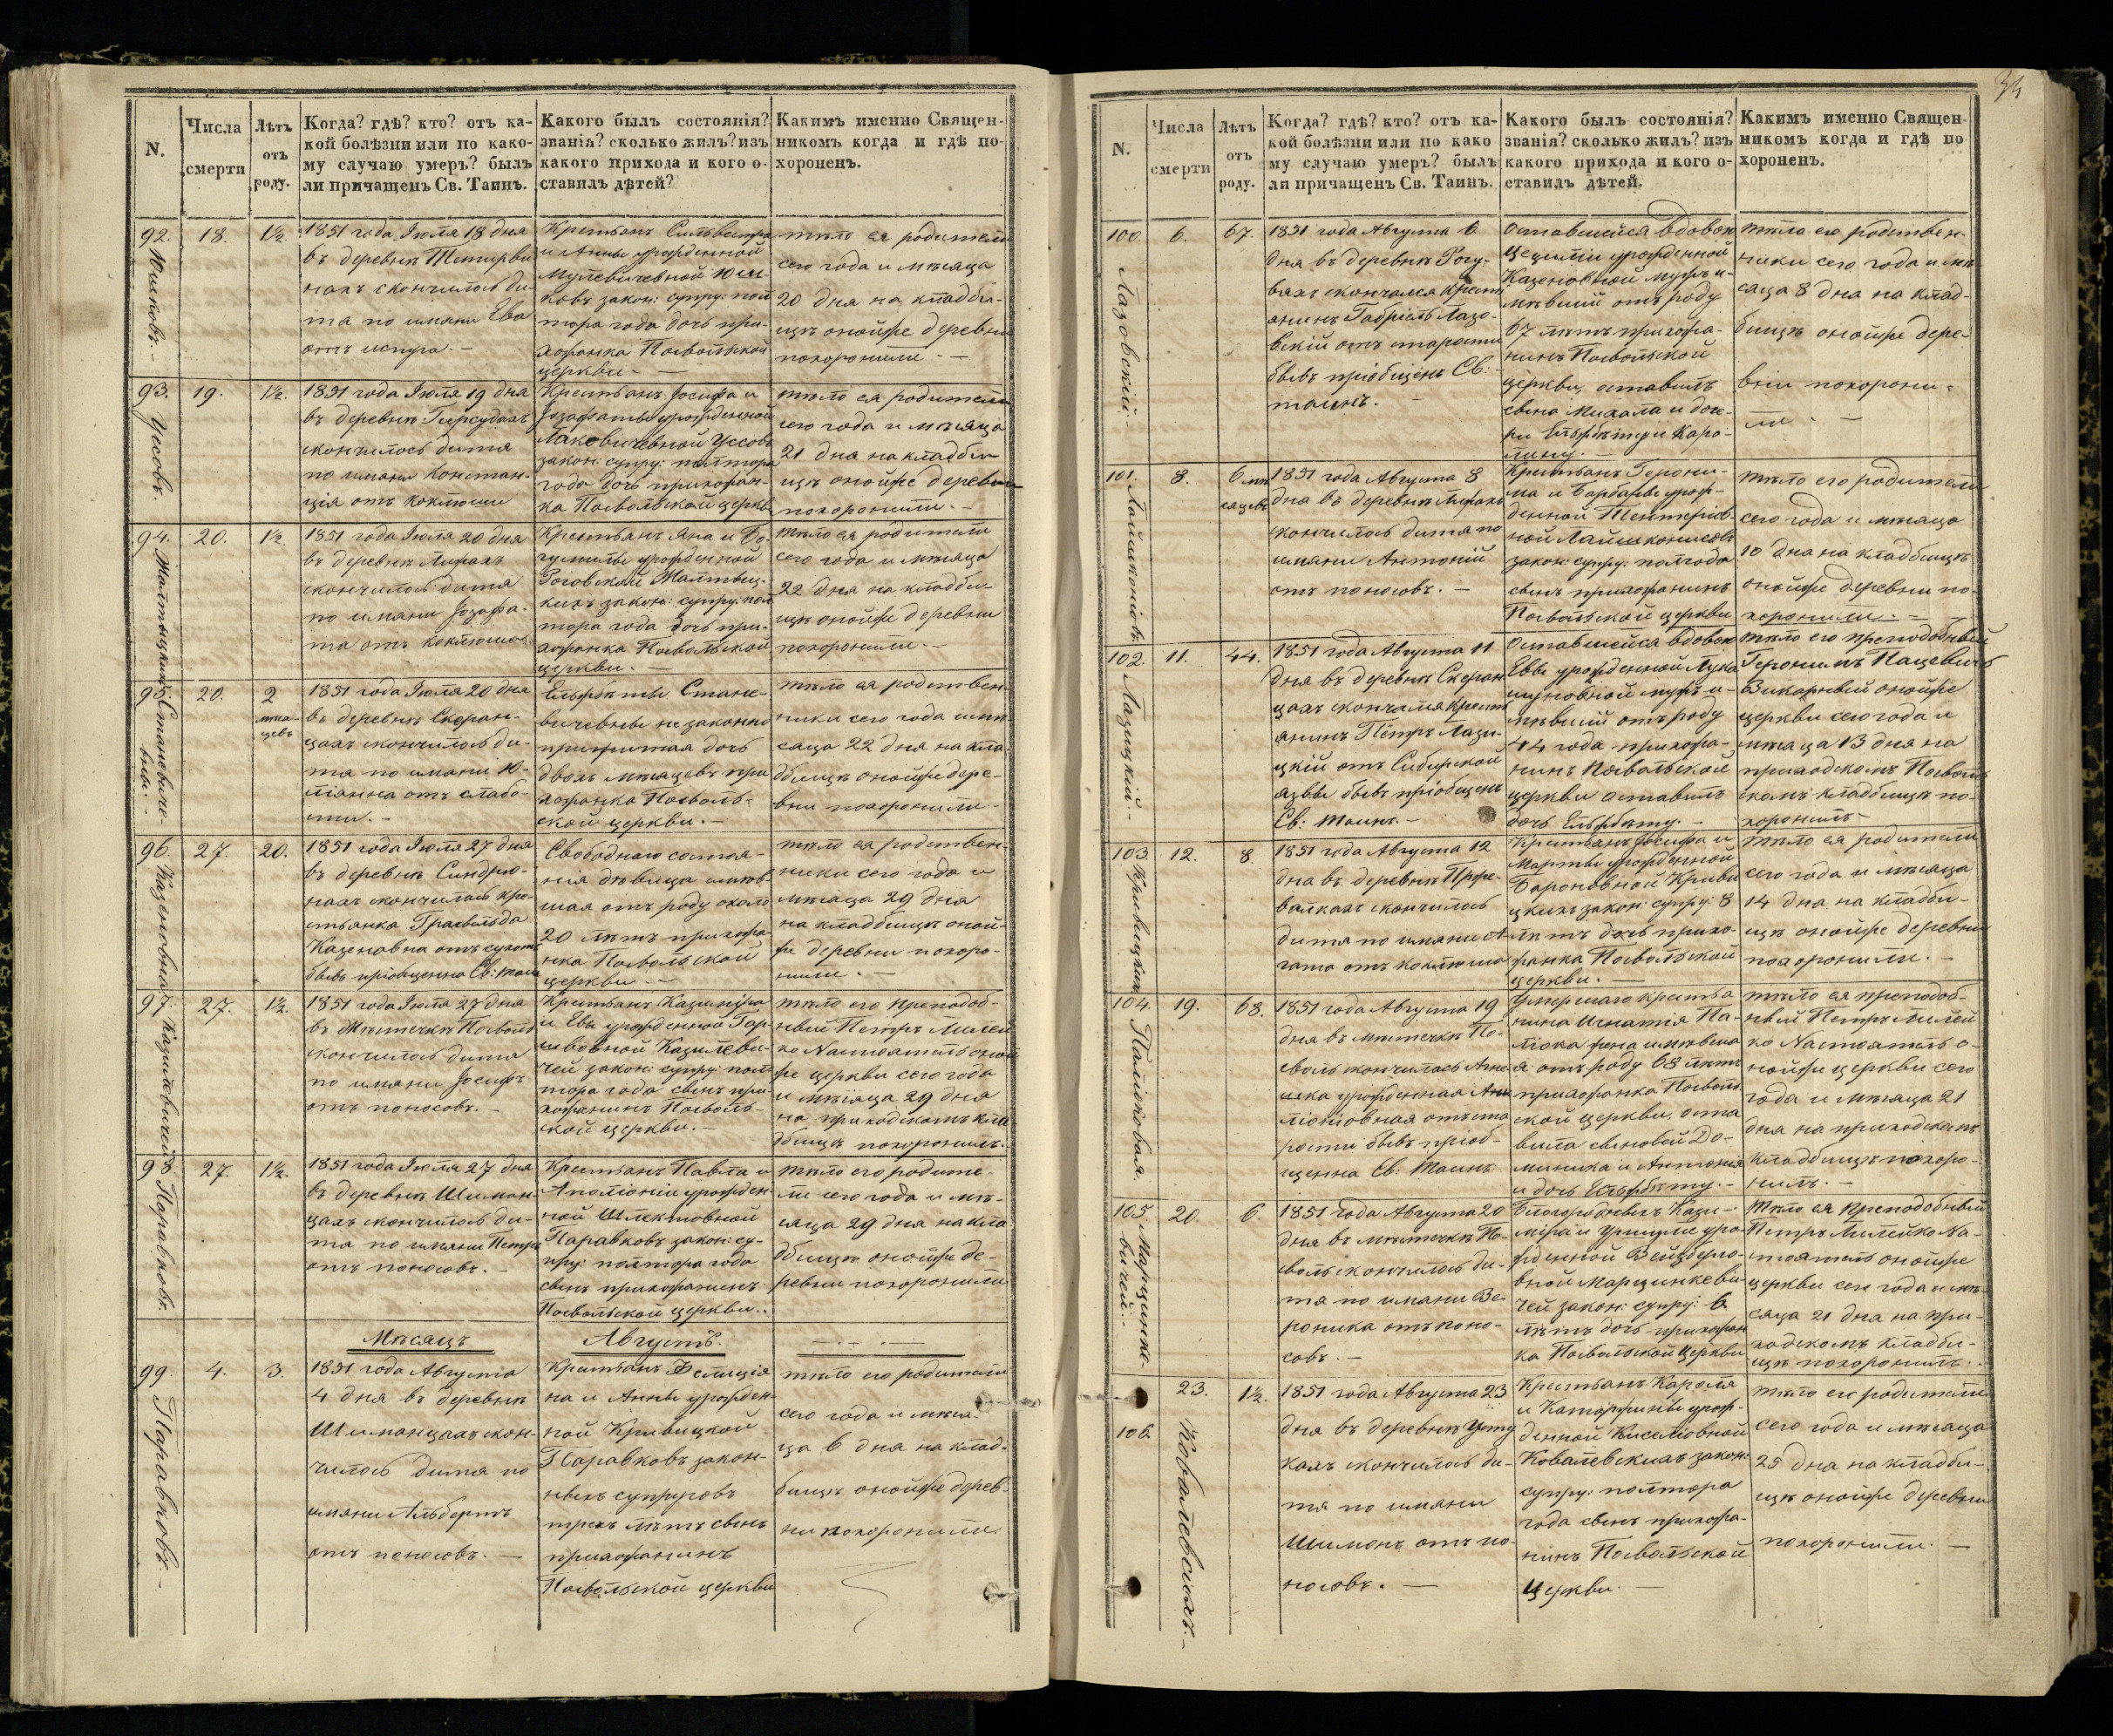 N.
Числа
смерти
Лѣтъ
отъ
роду.
Когда? гдѣ? кто? отъ ка-
кой болѣзни или по како-
му случаю умеръ? былъ
ли причащенъ Св. Таинъ.
Какого былъ состоянія?
званія? сколько жилъ? изъ
какого прихода и кого о-
ставилъ дѣтей?
Какимъ именно Священ-
никомъ когда и гдѣ по-
хороненъ.
92.
Юшковъ.
18.
1½.
1851 года Іюля 18 дня
въ деревнѣ
скончилось ди-
тя по имяни Ева
отъ
Крестьянъ Сильвестра
и Анны урожденной
Мулевичевной Юш-
ковъ закон: супру: пол
тора года дочь при-
хожанка Посвольской
церкви. —
тѣло ея родители
сего года и мѣсяца
20 дня на кладби-
щѣ онойже деревни
похоронили. —
93.
Уссовъ.
19.
1½.
1851 года Іюля 19 дня
въ деревнѣ Гирсуданъ
скончилось дитя
по имяни Констан-
ція отъ коклюши
Крестьянъ Іосифа и
Іозафаты урожденной
Уссовъ
закон: супру: полтора
года дочь прихожан-
ка Посвольской церкв
тѣло ея родители
сего года и мѣсяца
21 дня на кладби
щѣ онойже деревни
похоронили. —
94.
20.
1½.
1851 года Іюля 20 дня
въ деревнѣ
скончилось дитя
по имяни Іозафа-
та отъ коклюша
Крестьянъ Яна и Бо-
гумилы урожденной
Роговской
кихъ закон: супру: пол
тора года дочь при-
хожанка Посвольской
церкви. —
Тѣло ея родители
сего года и мѣсяца
22 дня на кладби-
щѣ онойже деревни
похоронили. —
95.
Становиче-
вны. —
20.
2
мѣся-
цевъ
1851 года Іюля 20 дня
въ деревнѣ Скоран-
цахъ скончилось ди-
тя по имяни Ю-
ліянна отъ слабо-
сти. —
Ельжбѣты Стане-
вичевны незаконно
прижитая дочь
двохъ мѣсяцевъ при
хожанка Посволь-
ской церкви. —
тѣло ея родствен
ники сего года и мѣ-
сяца 22 дня на кла
дбищѣ онойже дере-
вни похоронили. —
96.
Казеновная
27.
20.
1851 года Іюля 27 дня
въ деревнѣ Синдрю-
нахъ скончилась кре-
стьянка
Казеновна отъ сухотъ
бывъ пріобщенна Св: таинъ
Свободнаго состоя-
нія дѣвица имѣв
шая отъ роду около
20 лѣтъ прихожа
нка Посвольской
церкви —
тѣло ея родствен-
ники сего года и
мѣсяца 29 дня
на кладбищѣ оной-
же деревни похоро-
нили. —
97.
27.
1½.
1851 года Іюля 27 дня
въ мѣстечкѣ Посволѣ
скончилось дитя
по имяни Іосифъ
отъ поносовъ. —
Крестьянъ Казиміра
и Евы урожденной Гар-
швовной Казилеви-
чей закон: супру: полт
тора года сынъ при-
хожанинъ Посволь-
ской церкви. —
тѣло его преподоб-
ный Петръ Милей
ко Настоятель оной
же церкви сего года
и мѣсяца 29 дня
на приходскомъ кла
дбищѣ похоронилъ. —
9
Паравковъ.
27.
1½.
1851 года Іюля 27 дня
въ деревнѣ Шиман-
цахъ скончилось ди-
тя по имяни Петръ
отъ поносовъ. —
Крестьянъ Павла и
Аполіоніи урожден-
ной Шлектовной
Паравковъ закон: су-
пру: полтора года
сынъ прихожанинъ
Посвольской церкви..
тѣло его родите-
ли сего года и мѣ-
сяца 29 дня на кла
дбищѣ онойже де-
ревни похоронили
Мѣсяцъ
Августъ.
99.
Паравковъ. —
4.
3.
1851 года Августа
4 дня въ деревнѣ
Шиманцахъ скон-
чилось дитя по
имяни Альбертъ
отъ поносовъ. —
Крестьянъ Фелиція
на и Анны урожден
ной Кривицкой
Паравковъ закон-
ныхъ супруговъ
трехъ лѣтъ сынъ
прихожанинъ
Посвольской церкви
тѣло его родители
сего года и мѣся-
ца 6 дня на клад-
бищѣ онойже дерев-
ни похоронили.
34
N.
Числа
смерти
Лѣтъ
отъ
роду.
Когда? гдѣ? кто? отъ ка-
кой болѣзни или по како
му случаю умеръ? былъ
ли причащенъ Св. Таинъ.
Какого былъ состоянія?
званія? сколько жилъ? изъ
какого прихода и кого о-
ставилъ дѣтей.
Какимъ именно Священ-
никомъ когда и гдѣ по
хороненъ.
100
Лазовскій. —
6.
67.
1851 года Августа 6
дня въ деревнѣ Рогу-
вяхъ скончался крестъ
янинъ Габріель Лазо-
вскій отъ старости
бывъ пріобщенъ Св:
таинъ. —
Оставшейся вдовою
Цециліи урожденной
Казеновной мужъ и-
мѣвший отъ роду
67 лѣтъ прихожа-
нинъ Посвольской
церкви, оставилъ
сына Михала и доч-
ри Ельжбѣту и Каро-
лину. —
тѣло его родствен-
ники сего года и мѣ
сяца 8 дня на клад-
бищѣ онойже дере-
вни похорони-
ли. —
101.
8.
6 мѣ
сяцевъ
1851 года Августа 8
дня въ деревнѣ
скончилось дитя по
имяни Антоній
отъ поносовъ. —
Крестьянъ Герони-
ма и Барбары урож-
денной
ной
закон: супру: полгода
сынъ прихожанинъ
Посвольской церкви
тѣло его родители
сего года и мѣсяца
10 дня на кладбищѣ
онойже деревни по-
хоронили. —
102.
Лазицкій. —
11.
44.
1851 года Августа 11
дня въ деревнѣ Скоран
цахъ скончился крестъ
янинъ Пётръ Лази-
цкій отъ Сибирской
язвы бывъ пріобщенъ
Св: таинъ. —
Оставшейся вдовою
Евы урожденной
мужъ и-
мѣвший отъ роду
44 года прихожа-
нинъ Посвольской
церкви оставилъ
дочь Ельжбѣту. —
тѣло его преподобный
Геронимъ Пацевичъ
Викарный онойже
церкви сего года и
мѣсяца 13 дня на
приходскомъ Посволь
скомъ кладбищѣ по-
хоронилъ —
103.
Кривицкихъ
12.
8.
1851 года Августа 12
дня въ деревнѣ
валкахъ скончилось
дитя по имяни А-
гата отъ коклюша
Крестьянъ Іосифа и
Марты урожденной
Бароновной Криви
цкихъ закон: супру: 8
лѣтъ дочь прихо-
жанка Посвольской
церкви. —
Тѣло ея родители
сего года и мѣсяца
14 дня на кладби-
щѣ онойже деревни
похоронили. —
104.
Паліоковая.
19.
68.
1851 года Августа 19
дня въ мѣстечкѣ По-
сволѣ скончилась Агне
шка урожденная
отъ ста
рости бывъ пріоб-
щенна Св: Таинъ
Умершаго крестья
нина Игнатія Па-
ліока жена имѣвша
я отъ роду 68 лѣтъ
прихожанка Посволь
ской церкви, оста
вила сыновей До-
миника и Антонія
и дочь Ельжбѣту. —
тѣло ея преподоб-
ный Петръ Милей
ко Настоятель о-
нойже церкви сего
года и мѣсяца 21
дня на приходскомъ
кладбищѣ похоро-
нилъ. —
105.
Марцинке-
вичей. —
20.
6.
1851 года Августа 20
дня въ мѣстечкѣ По-
сволѣ скончилось ди-
тя по имяни Ве-
роника отъ поно-
совъ. —
Благородныхъ Кази-
міра и Уршули уро-
жденной
вной Марцинкеви-
чей закон: супру: 6
лѣтъ дочь прихожан
ка Посвольской Церкви
Тѣло ея преподобный
Петръ Милейко На-
стоятель онойже
церкви сего года и мѣ-
сяца 21 дня на при-
ходскомъ кладби-
щѣ похоронилъ.
106.
Ковалевскихъ. —
23.
1½.
1851 года Августа 23
дня въ деревнѣ
кахъ скончилось ди-
тя по имяни
Шимонъ отъ по-
носовъ. —
Крестьянъ Кароля
и Катаржины урож-
денной Киселювной
Ковалевскихъ закон:
супру: полтора
года сынъ прихожа-
нинъ Посвольской
Церкви. —
тѣло его родители
сего года и мѣсяца
25 дня на кладби-
щѣ онойже деревни
похоронили. —